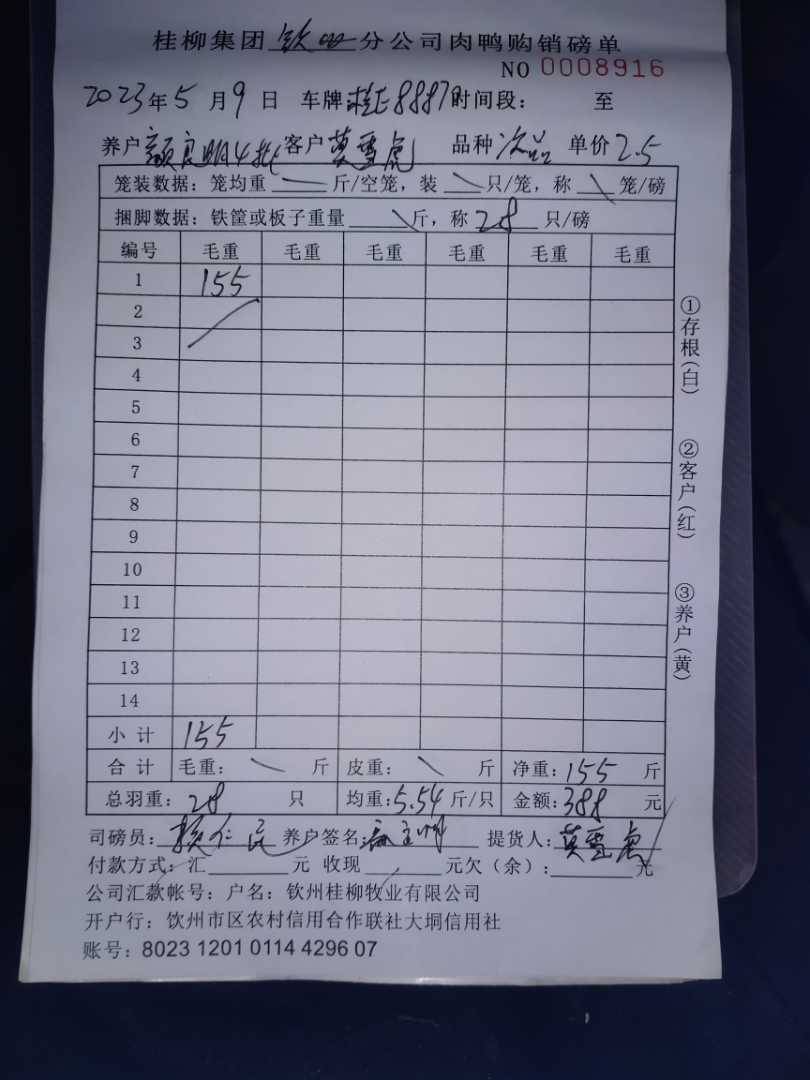 桂柳集团钦州分公司肉鸭购销磅单
NO 0008916
2023年5月9日 车牌桂E8887时间段： 至
养户颜良明4批客户莫雪虎 品种次品 单价2.5
笼装数据：笼均重 斤/空笼，装 只/笼，称 笼/磅
捆脚数据：铁筐或板子重量 斤，称28只/磅
编号 毛重 毛重 毛重 毛重 毛重 毛重
1 155
2
3
4
5
6
7
8
9
10
11
12
13
14
小计 155
合计 毛重： 斤 皮重： 斤 净重：155 斤
总羽重：28 只 均重：5.54斤/只 金额：388 元
司磅员： 养户签名： 提货人：莫雪虎
付款方式：汇 元 收现 元欠（余）： 元
公司汇款帐号：户名：钦州桂柳牧业有限公司
开户行：饮州市区农村信用合作联社大垌信用社
账号：8023 1201 0114 4296 07
①存根（白）
②客户（红）
③养户（黄）